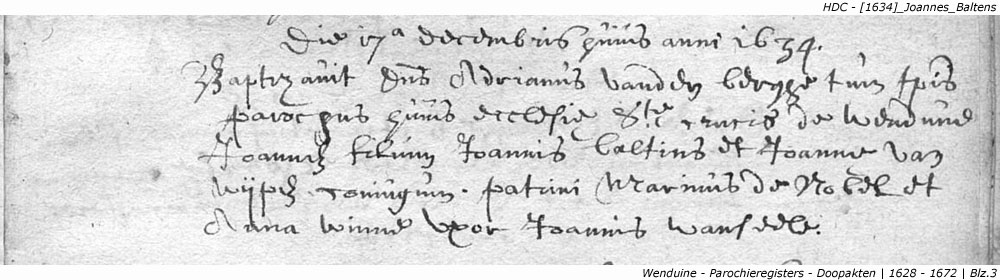 HDC - [1634]_Joannes_Baltens
Die 17a decembris huius anni 1634.
Baptizavit dns Adrianus vanden berghe tum tpis
parochus huius ecclesie Ste crucis de Wendune
Joannes filium Joannis baltins et Joanne van
wijpe coniugum. patrini Marinus de Nobel et
Anna winne uxor Joannis wanseele.
Wenduine - Parochieregisters - Doopakten | 1628 - 1672 | Blz.3